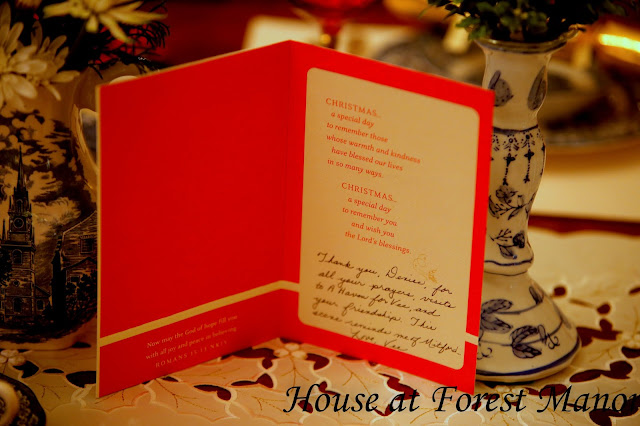 Now may the God of hope fill you
with all joy and peace in believing
ROMANS 15:13 NKJV
CHRISTMAS...
a special day
to remember those
whose warmth and kindness
have blessed our lives
in so many ways.
CHRISTMAS...
a special day
to remember you
and wish you
the Lord's blessings.
Thank you, Denise, for
all your prayers, visits
to A Haven for Vee, and
your friendship. This
scene reminds me of Mitford.
Love Vee
House at Forest Manor